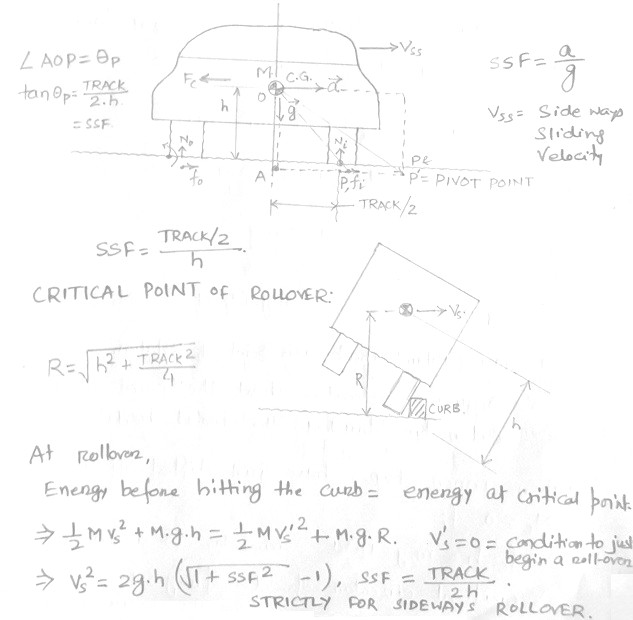 ∠AOP = θp
tan θp = TRACK / 2.h
= SSF
Vss
SSF = a / g
Vss = Side ways
Sliding
Velocity
Fc
M
C.G.
a
O
g
h
No
Ni
fo
A
P, fi
P' = PIVOT POINT
TRACK/2
SSF = TRACK/2 / h
CRITICAL POINT OF ROLLOVER:
Vs.
R = √(h² + TRACK² / 4)
R
CURB.
h
At rollover,
Energy before hitting the curb = energy at critical point.
⇒ 1/2 M Vs² + M.g.h = 1/2 M Vs'² + M.g.R. Vs' = 0 = condition to just
begin a roll-over
⇒ Vs² = 2g.h (√(1 + SSF²) - 1), SSF = TRACK / 2h .
STRICTLY FOR SIDEWAYS ROLLOVER.